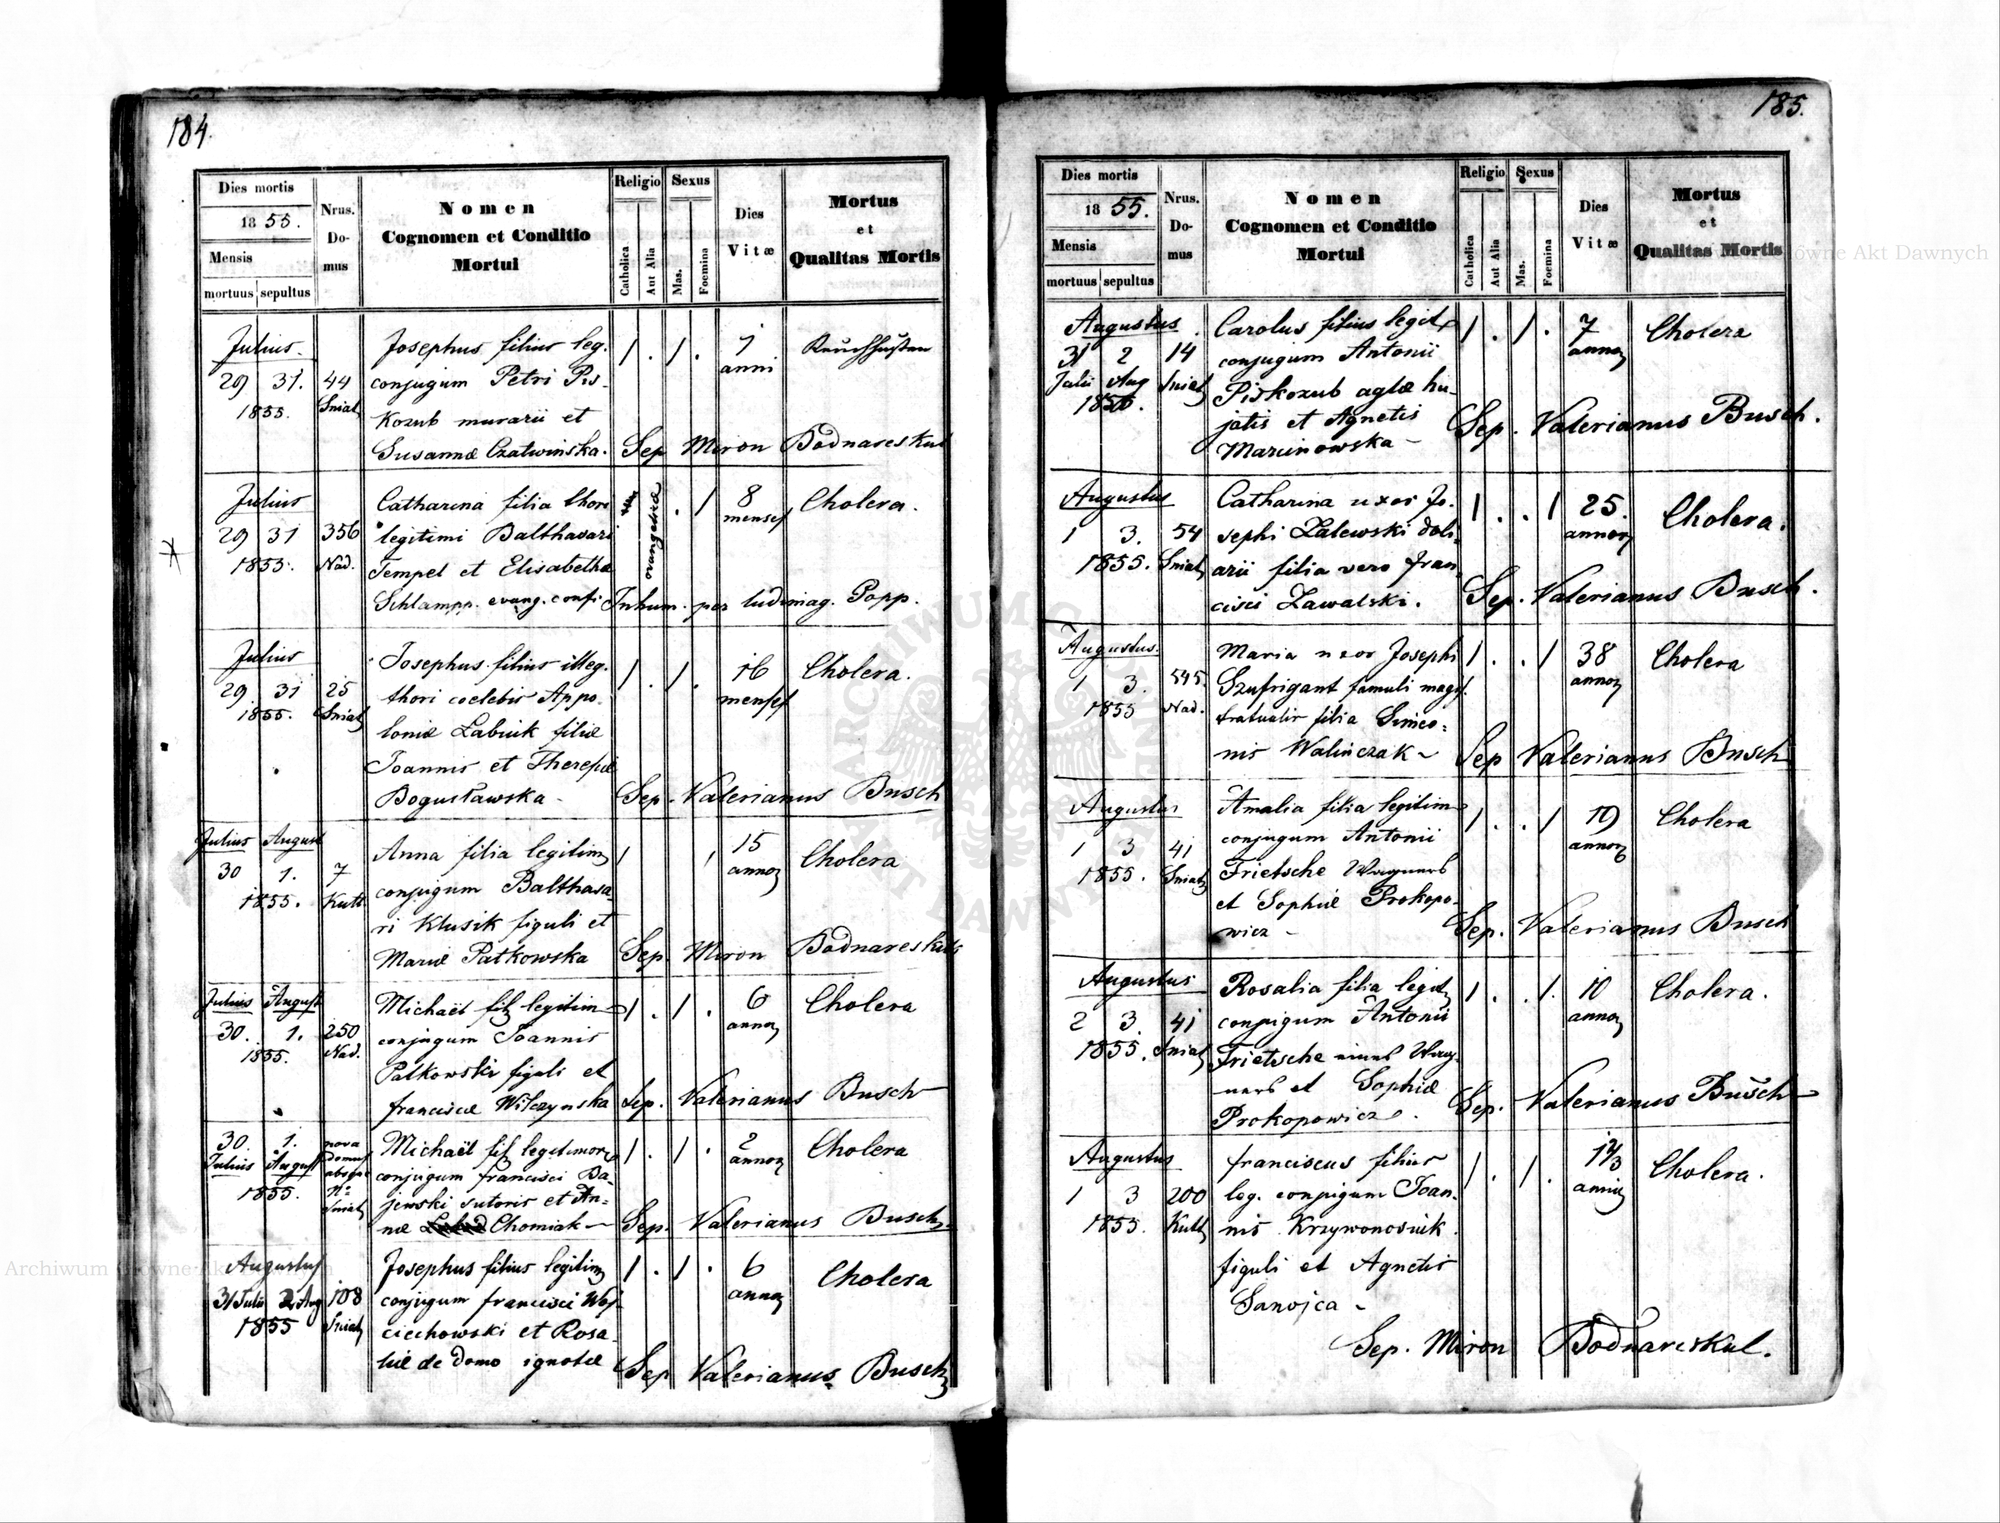 184.
Dies mortis
1855.
Mensis
mortuus sepultus
Nrus. Domus
Nomen
Cognomen et Conditio
Mortui
Religio
Catholica
Aut Alia
Sexus
Mas.
Foemina
Dies
Vitæ
Mortus
et
Qualitas Mortis
Julius.
29 31. 44
1855. Sniat
Josephus filius leg.
conjugum Petri Pis-
kozub murarii et
Susannæ Czatwinska.
1 . 1 .
1
anni
Keuchhusten
Sep Miron Bodnareskul
Julius
29 31 356
1855. Nad.
Catharina filia thori
legitimi Balthasari
Tempel et Elisabetha
Schlampp. evang. conf:
evangelica
. 1
8
menses
Cholera.
Inhum. per ludimag. Popp.
Julius
29 31 25
1855. Sniat
Josephus filius illeg.
thori coelebis Appo-
loniæ Labiuk filiæ
Joannis et Theresiæ
Bogusławska -
1 . 1 .
16
menses
Cholera.
Sep. Valerianus Busch
Julius August
30 1. 7
1855. Kutt
Anna filia legitim
conjugum Balthasa-
ri Klusik figuli et
Mariæ Patkowska
1 1
15
annor
Cholera
Sep. Miron Bodnareskul
Julius August
30. 1. 250
1855. Nad.
Michaël fil legitim
conjugum Joannis
Patkowski figuli et
franciscæ Wilczynska
1 . 1 .
6
annor
Cholera
Sep. Valerianus Busch
30. 1. nova
Julius August domus
1855. absque
No
Sniat
Michaël fil legitimor
conjugum francisci Ba-
jewski sutoris et An-
næ Chomiak -
1 . 1 .
2
annor
Cholera
Sep. Valerianus Busch
Augustus
31 Julii 2 Aug 108
1855 Sniat
Josephus filius legitim
conjugum francisci Woj-
ciechowski et Rosa-
liæ de domo ignotæ
1 . 1 .
6
annor
Cholera
Sep Valerianus Busch
185.
Dies mortis
1855.
Mensis
mortuus sepultus
Nrus. Domus
Nomen
Cognomen et Conditio
Mortui
Religio
Catholica
Aut Alia
Sexus
Mas.
Foemina
Dies
Vitæ
Mortus
et
Qualitas Mortis
Augustus
31 2 14
Julii Aug Sniat
1855.
Carolus filius legit
conjugum Antonii
Piskozub aglæ hu-
jatis et Agnetis
Marcinowska -
1 . 1 .
7
annor
Cholera
Sep. Valerianus Busch.
Augustus
1 3. 54
1855. Sniat
Catharina uxor Jo-
sephi Zalewski doli-
arii filia vero fran-
cisci Zawalski.
1 . . 1
25.
annor
Cholera.
Sep. Valerianus Busch.
Augustus.
1 3. 545.
1855 Nad.
Maria uxor Josephi
Szufrigant famuli magi-
stratualis filia Simeo-
nis Walińczak -
1 . . 1
38
annor
Cholera
Sep Valerianus Busch
Augustus
1 3 41
1855. Sniat
Amalia filia legitim
conjugum Antonii
Frietsche Wagners
et Sophiæ Prokopo-
wicz -
1 . . 1
19
annor
Cholera
Sep. Valerianus Busch
Augustus
2 3. 41
1855. Sniat
Rosalia filia legit
conjugum Antonii
Frietsche eines Wag-
ners et Sophiæ
Prokopowicz.
1 . . 1.
10
annor
Cholera.
Sep. Valerianus Busch
Augustus
1 3 200
1855. Kutt
franciscus filius
leg. conjugum Joan-
nis Krzywonosiuk
figuli et Agnetis
Sanojca -
1 . 1 .
Cholera.
Sep. Miron Bodnareskul.
Archiwum Główne Akt Dawnych